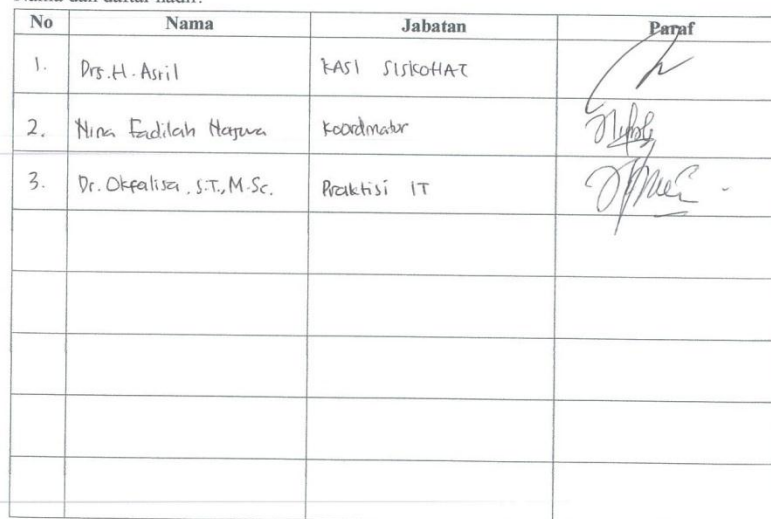 Nama dan daftar hadir:
No Nama Jabatan Paraf
1. Drs. H. Asril KASI SISKOHAT
2. Nina Fadilah Najwa Koordinator
3. Dr. Okfalisa, S.T., M.Sc. Praktisi IT